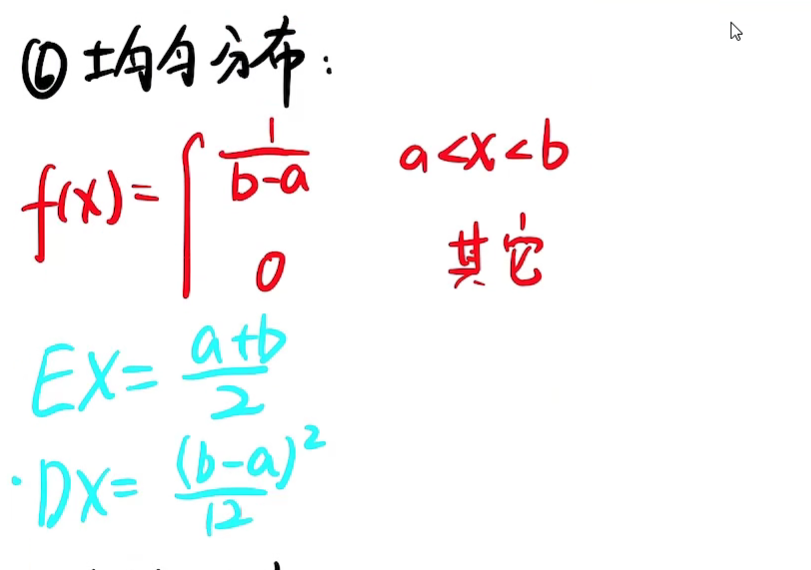 ⑥ 均匀分布:
f(x) = { 1/(b-a) a<x<b
0 其它
EX = (a+b)/2
·DX = (b-a)²/12